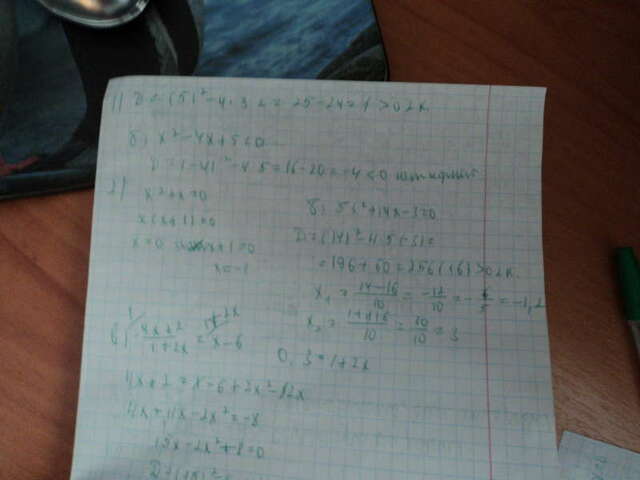 1) D = (5)² - 4 · 3 · 2 = 25 - 24 = 1 > 0 2к.
б) x² - 4x + 5 = 0
D = (-4)² - 4 · 5 = 16 - 20 = -4 < 0 нет корней
2)
x² + x = 0
x(x + 1) = 0
x = 0 x + 1 = 0
x = -1
б) 5x² + 14x - 3 = 0
D = (14)² - 4 · 5 (-3) =
= 196 + 60 = 256 (16) > 0 2к.
x₁ = 14 - 16 / 10 = -12 / 10 = - 6 / 5 = -1,2
x₂ = 14 + 16 / 10 = 30 / 10 = 3
в) 4x + 2 / 1 + 2x = x - 6
1 + 2x
0, 3 = 1 + 2x
4x + 2 = x - 6 + 2x² - 12x
4x + 11x - 2x² = -8
15x - 2x² + 8 = 0